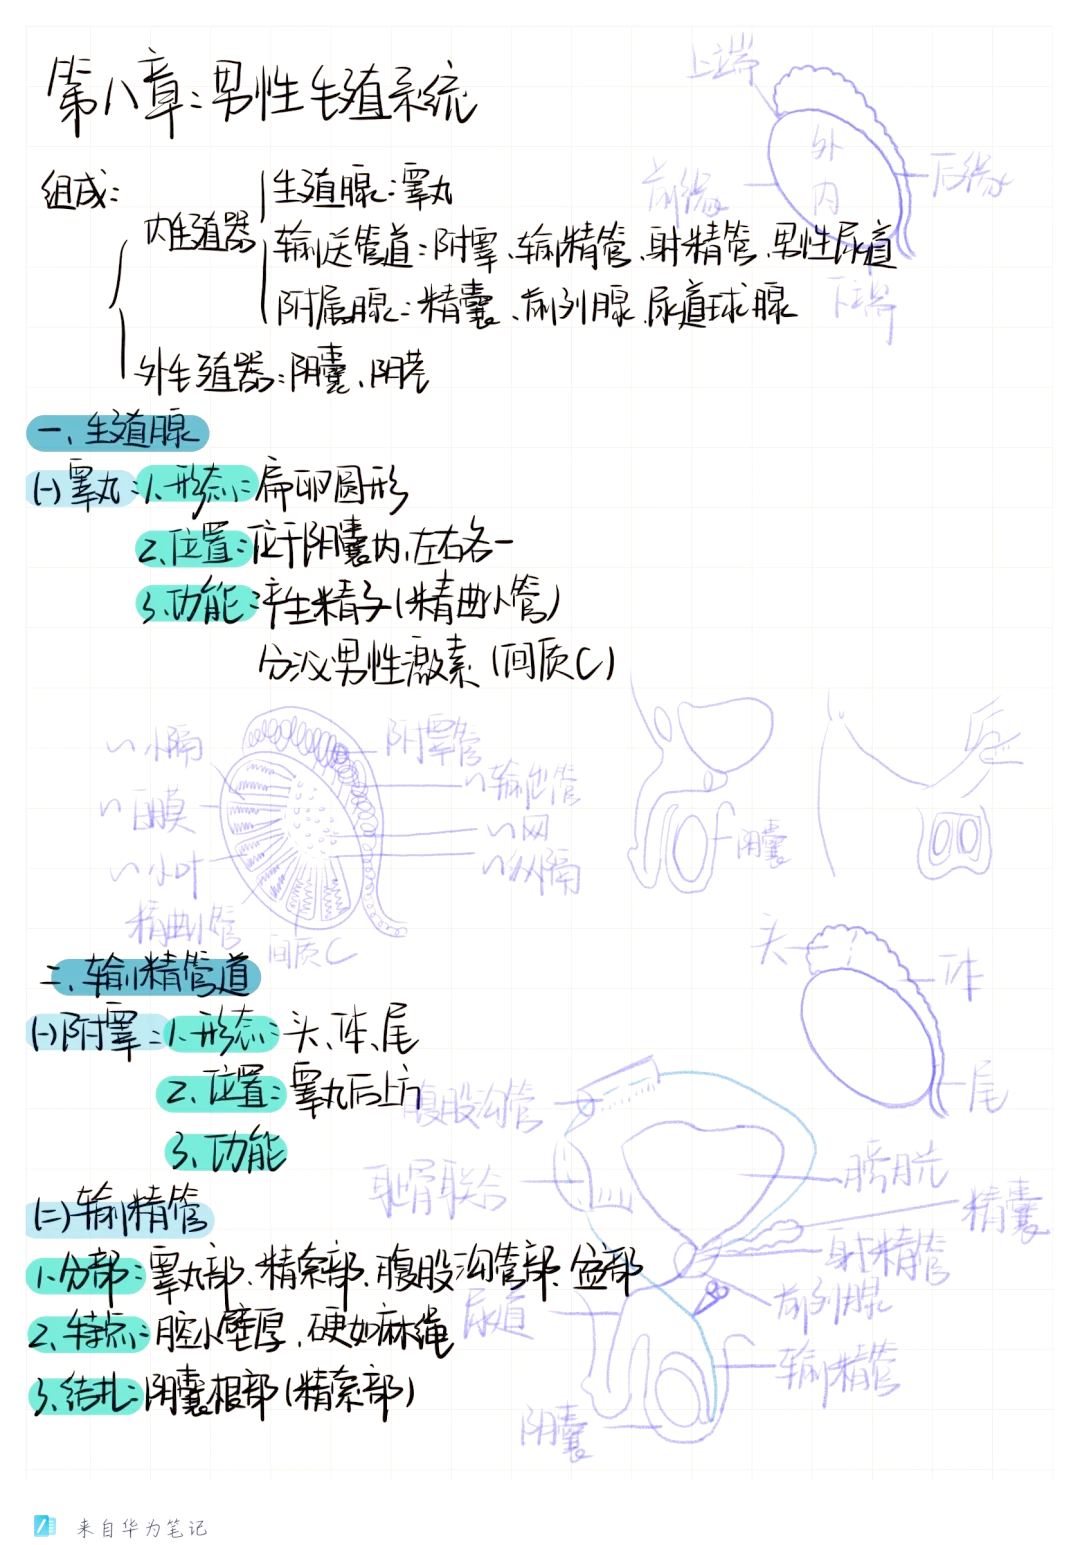 第八章：男性生殖系统
上端
外
内
前缘
后缘
下端
组成：
内生殖器
生殖腺：睾丸
输送管道：附睾、输精管、射精管、男性尿道
附属腺：精囊、前列腺、尿道球腺
外生殖器：阴囊、阴茎
一、生殖腺
(一)睾丸：1、形态：扁卵圆形
2、位置：位于阴囊内，左右各一
3、功能：产生精子(精曲小管)
分泌男性激素(间质C)
~小隔
附睾管
~输出管
~白膜
~网
~小叶
~纵隔
精曲小管
间质C
阴囊
后
二、输精管道
头
体
尾
(一)附睾：1、形态：头、体、尾
2、位置：睾丸后上方
3、功能
腹股沟管
耻骨联合
膀胱
精囊
射精管
前列腺
尿道
输精管
阴囊
(二)输精管
1、分部：睾丸部、精索部、腹股沟管部、盆部
2、特点：腔小壁厚，硬如麻绳
3、结扎：阴囊根部(精索部)
来自华为笔记